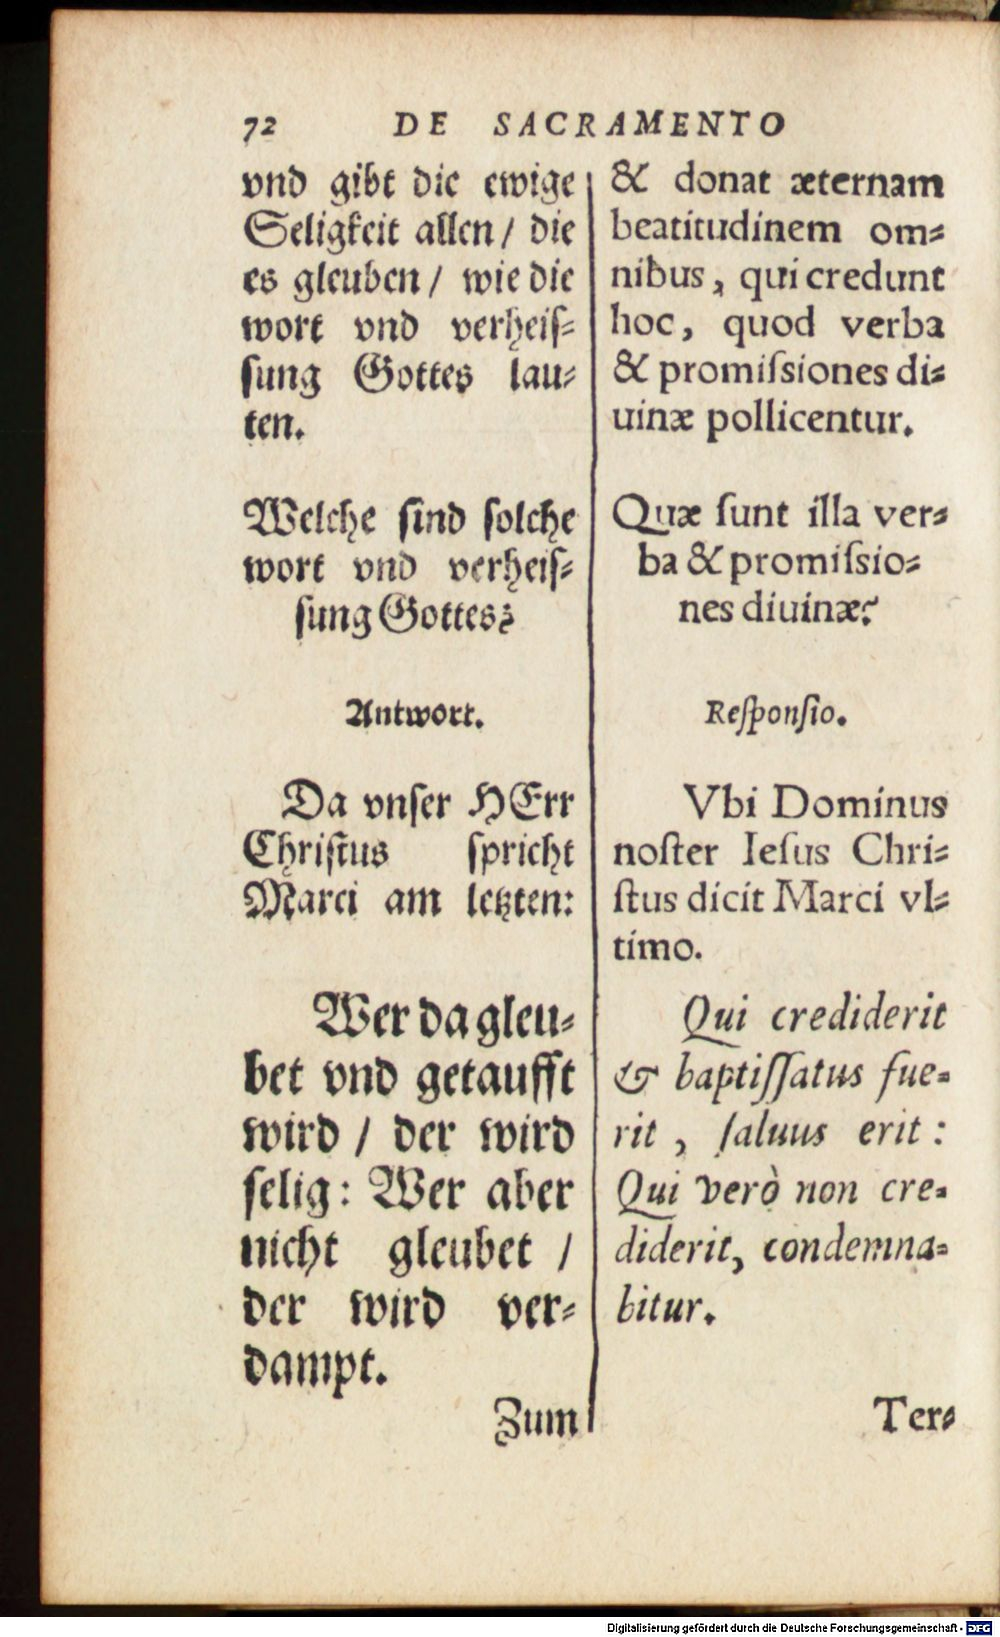 72 DE SACRAMENTO
vnd gibt die ewige
Seligkeit allen / die
es gleuben / wie die
wort vnd verheiſ⸗
ſung Gottes lau⸗
ten.
Welche ſind ſolche
wort vnd verheiſ⸗
ſung Gottes?
Antwort.
Da vnſer HErr
Chriſtus ſpricht
Marci am letzten:
Wer da gleu⸗
bet vnd getaufft
wird / der wird
ſelig: Wer aber
nicht gleubet /
der wird ver⸗
dampt.
Zum
& donat æternam
beatitudinem om⸗
nibus, qui credunt
hoc, quod verba
& promiſsiones di⸗
uinæ pollicentur.
Quæ ſunt illa ver⸗
ba & promiſsio⸗
nes diuinæ?
Reſponſio.
Vbi Dominus
noſter Ieſus Chri⸗
ſtus dicit Marci vl⸗
timo.
Qui crediderit
& baptiſſatus fue⸗
rit, ſaluus erit:
Qui verò non cre⸗
diderit, condemna⸗
bitur.
Ter⸗
Digitalisierung gefördert durch die Deutsche Forschungsgemeinschaft - DFG